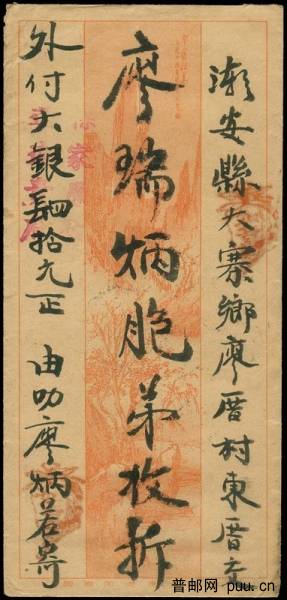 潮安縣大寨鄉廖厝村東厝交
廖瑞炳胞弟收拆
外付大銀肆拾元正 由叻廖炳若寄
普邮网 puu.cn